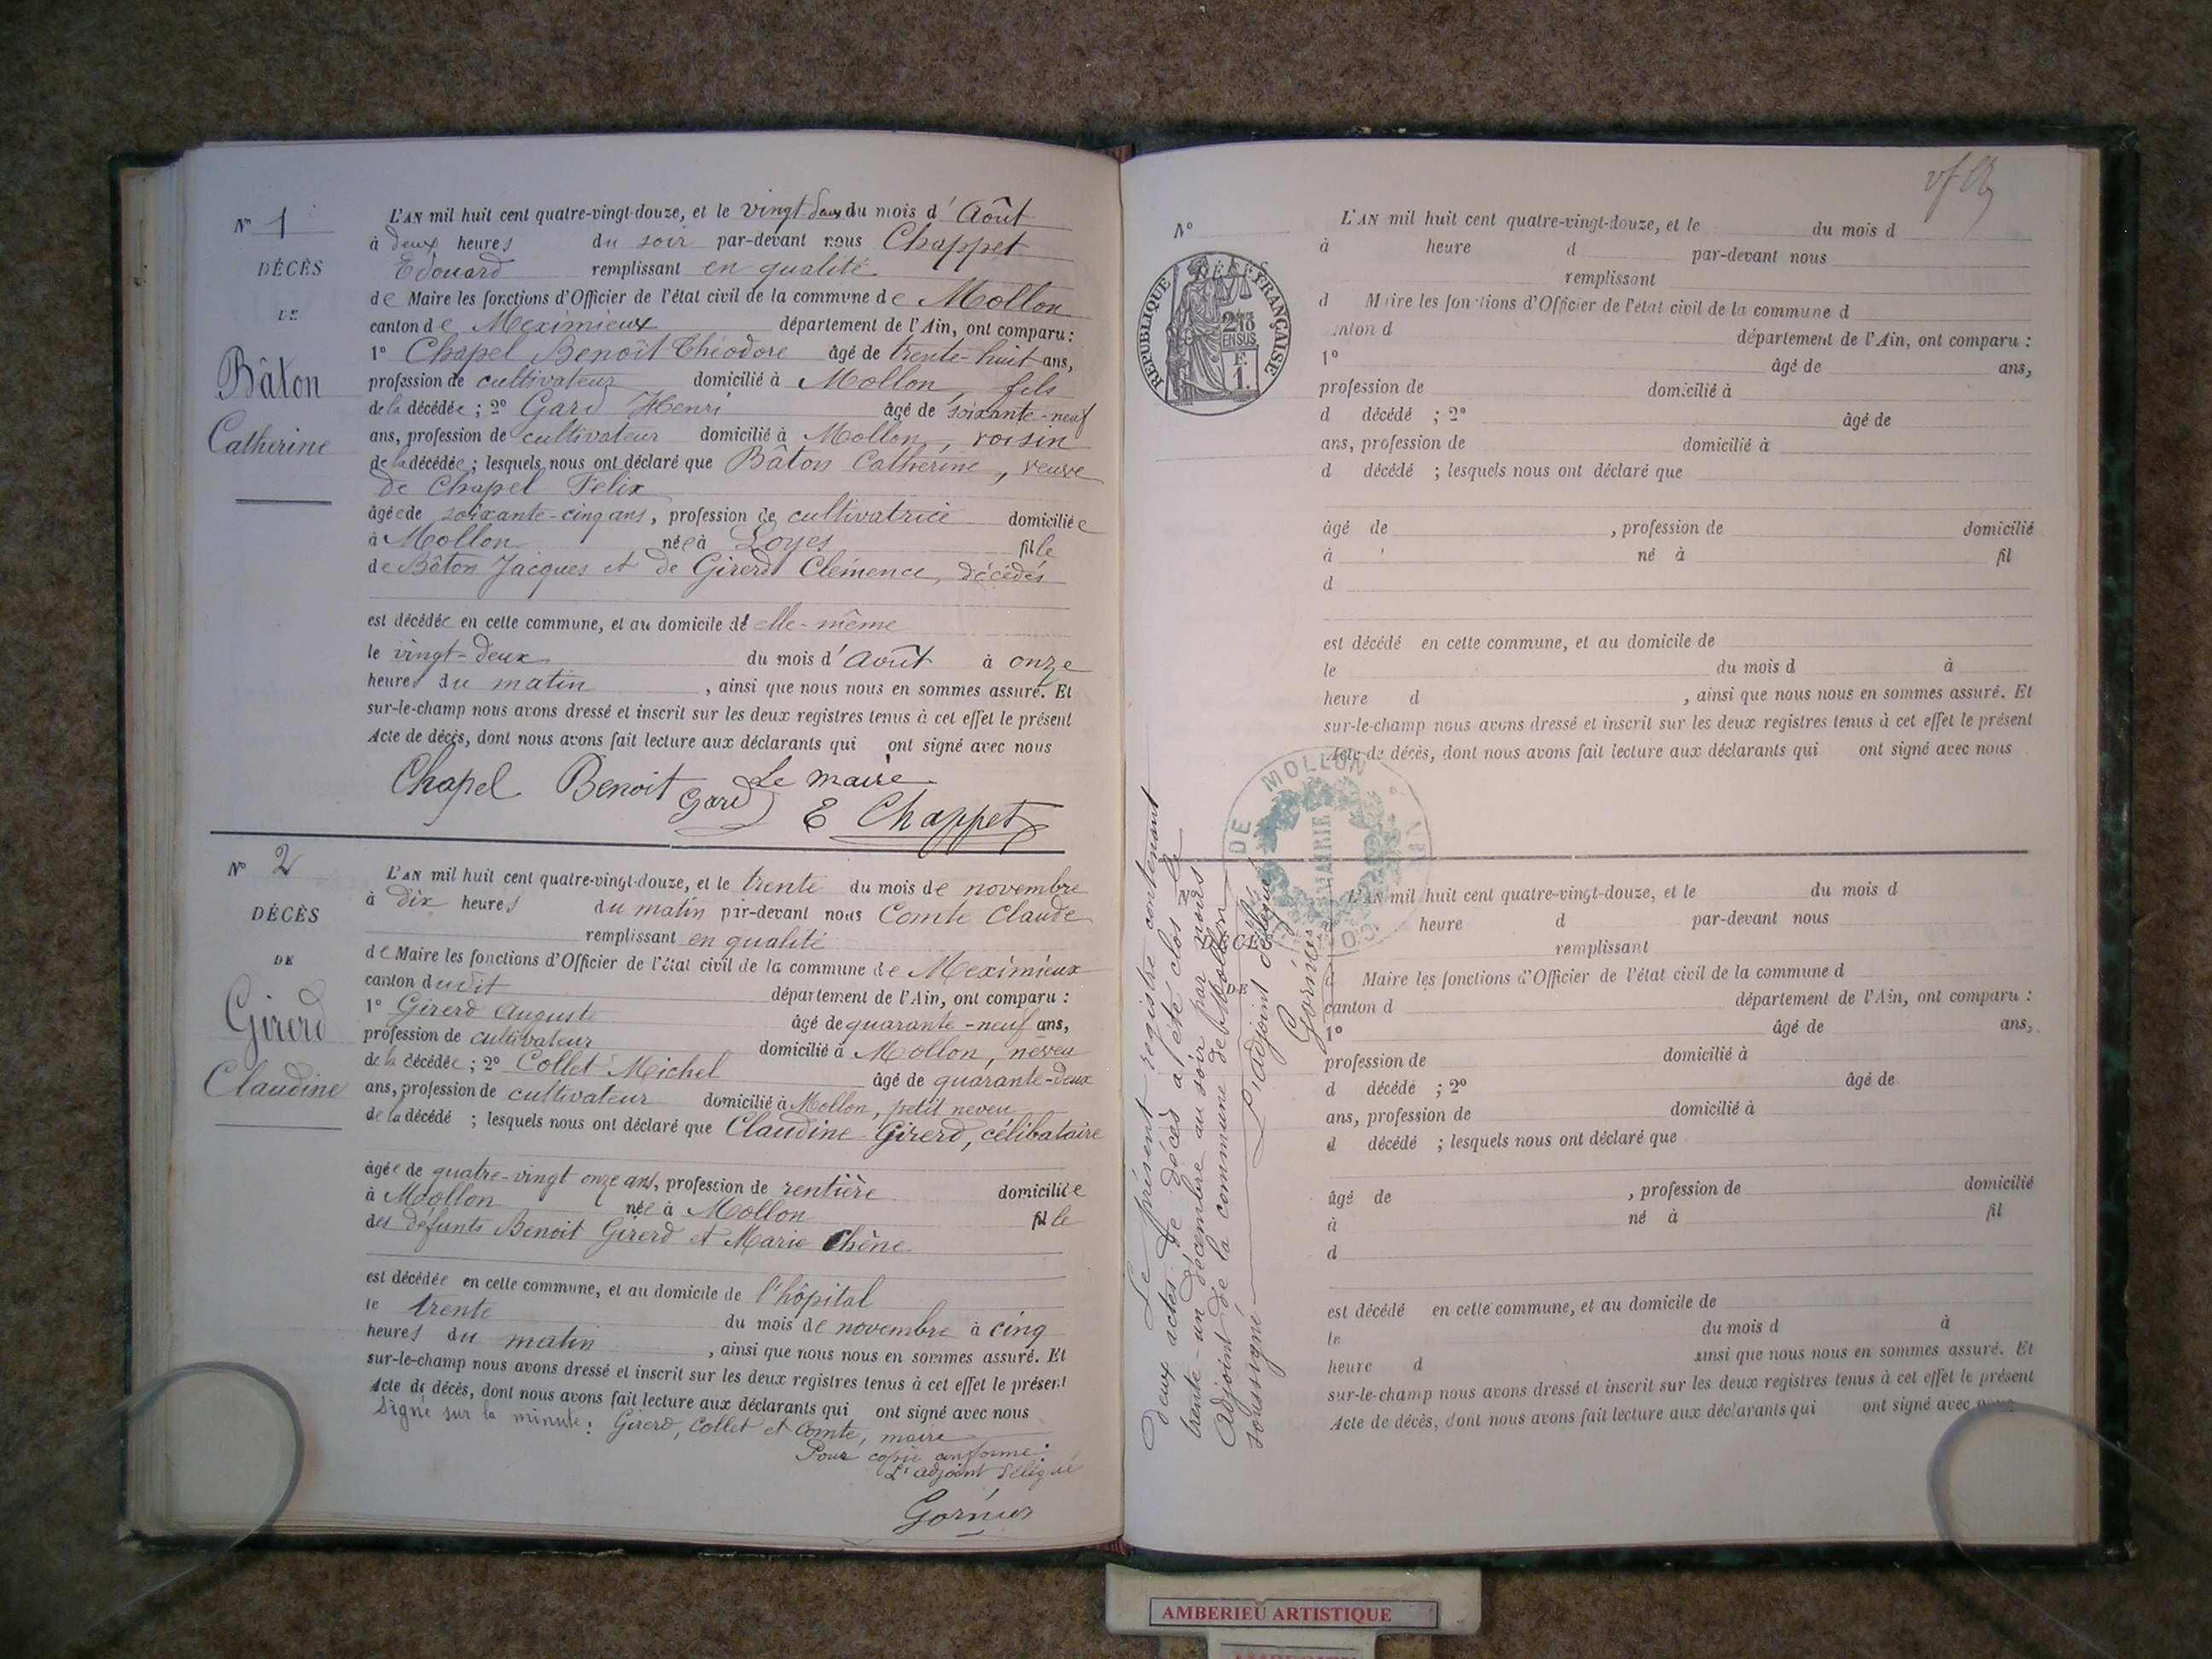 N° 1
DÉCÈS
DE
Bâton
Catherine
L'AN mil huit cent quatre-vingt-douze, et le vingt-deux du mois d'Août
à deux heures du soir par-devant nous Chappet
Edouard remplissant en qualité
de Maire les fonctions d'Officier de l'état civil de la commune de Mollon
canton de Meximieux département de l'Ain, ont comparu :
1° Chapel Benoît Théodore âgé de trente-huit ans,
profession de cultivateur domicilié à Mollon, fils
de la décédée ; 2° Gard Henri âgé de soixante-neuf
ans, profession de cultivateur domicilié à Mollon, voisin
de la décédée ; lesquels nous ont déclaré que Bâton Catherine, veuve
de Chapel Félix
âgée de soixante-cinq ans, profession de cultivatrice domiciliée
à Mollon née à Loyes fille
de Bâton Jacques et de Girerd Clémence, décédés
est décédée en cette commune, et au domicile d'elle-même
le vingt-deux du mois d'Août à onze
heures du matin, ainsi que nous nous en sommes assuré. Et
sur-le-champ nous avons dressé et inscrit sur les deux registres tenus à cet effet le présent
Acte de décès, dont nous avons fait lecture aux déclarants qui ont signé avec nous
Chapel Benoit Gard Le maire
E Chappet
N° 2
DÉCÈS
DE
Girerd
Claudine
L'AN mil huit cent quatre-vingt-douze, et le trente du mois de novembre
à dix heures du matin par-devant nous Comte Claude
remplissant en qualité
de Maire les fonctions d'Officier de l'état civil de la commune de Meximieux
canton dudit département de l'Ain, ont comparu :
1° Girerd Auguste âgé de quarante-neuf ans,
profession de cultivateur domicilié à Mollon, neveu
de la décédée ; 2° Collet Michel âgé de quarante-deux
ans, profession de cultivateur domicilié à Mollon, petit neveu
de la décédé ; lesquels nous ont déclaré que Claudine Girerd, célibataire
âgée de quatre-vingt onze ans, profession de rentière domiciliée
à Mollon née à Mollon fille
des défunts Benoit Girerd et Marie Chêne
est décédée en cette commune, et au domicile de l'hôpital
le trente du mois de novembre à cinq
heures du matin, ainsi que nous nous en sommes assuré. Et
sur-le-champ nous avons dressé et inscrit sur les deux registres tenus à cet effet le présent
Acte de décès, dont nous avons fait lecture aux déclarants qui ont signé avec nous
Signé sur la minute : Girerd, Collet et Comte, maire
Pour copie conforme :
L'adjoint délégué
Gornier
N°
RÉPUBLIQUE FRANÇAISE
2/10
EN SUS
F.
1.
L'AN mil huit cent quatre-vingt-douze, et le du mois d
à heure d par-devant nous
remplissant
d Maire les fonctions d'Officier de l'état civil de la commune d
canton d département de l'Ain, ont comparu :
1° âgé de ans,
profession de domicilié à
d décédé ; 2° âgé de
ans, profession de domicilié à
d décédé ; lesquels nous ont déclaré que
âgé de , profession de domicilié
à né à fil
d
est décédé en cette commune, et au domicile de
le du mois d à
heure d , ainsi que nous nous en sommes assuré. Et
sur-le-champ nous avons dressé et inscrit sur les deux registres tenus à cet effet le présent
Acte de décès, dont nous avons fait lecture aux déclarants qui ont signé avec nous
DE MOLLON
MAIRIE
Le présent registre contenant
deux actes de décès a été clos le
trente-un décembre au soir par nous
Adjoint de la commune de Mollon
soussigné
L'adjoint délégué
Gornier
L'AN mil huit cent quatre-vingt-douze, et le du mois d
heure d par-devant nous
remplissant
Maire les fonctions d'Officier de l'état civil de la commune d
canton d département de l'Ain, ont comparu :
1° âgé de ans,
profession de domicilié à
d décédé ; 2° âgé de
ans, profession de domicilié à
d décédé ; lesquels nous ont déclaré que
âgé de , profession de domicilié
à né à fil
d
est décédé en cette commune, et au domicile de
le du mois d à
heure d ainsi que nous nous en sommes assuré. Et
sur-le-champ nous avons dressé et inscrit sur les deux registres tenus à cet effet le présent
Acte de décès, dont nous avons fait lecture aux déclarants qui ont signé avec nous
AMBERIEU ARTISTIQUE